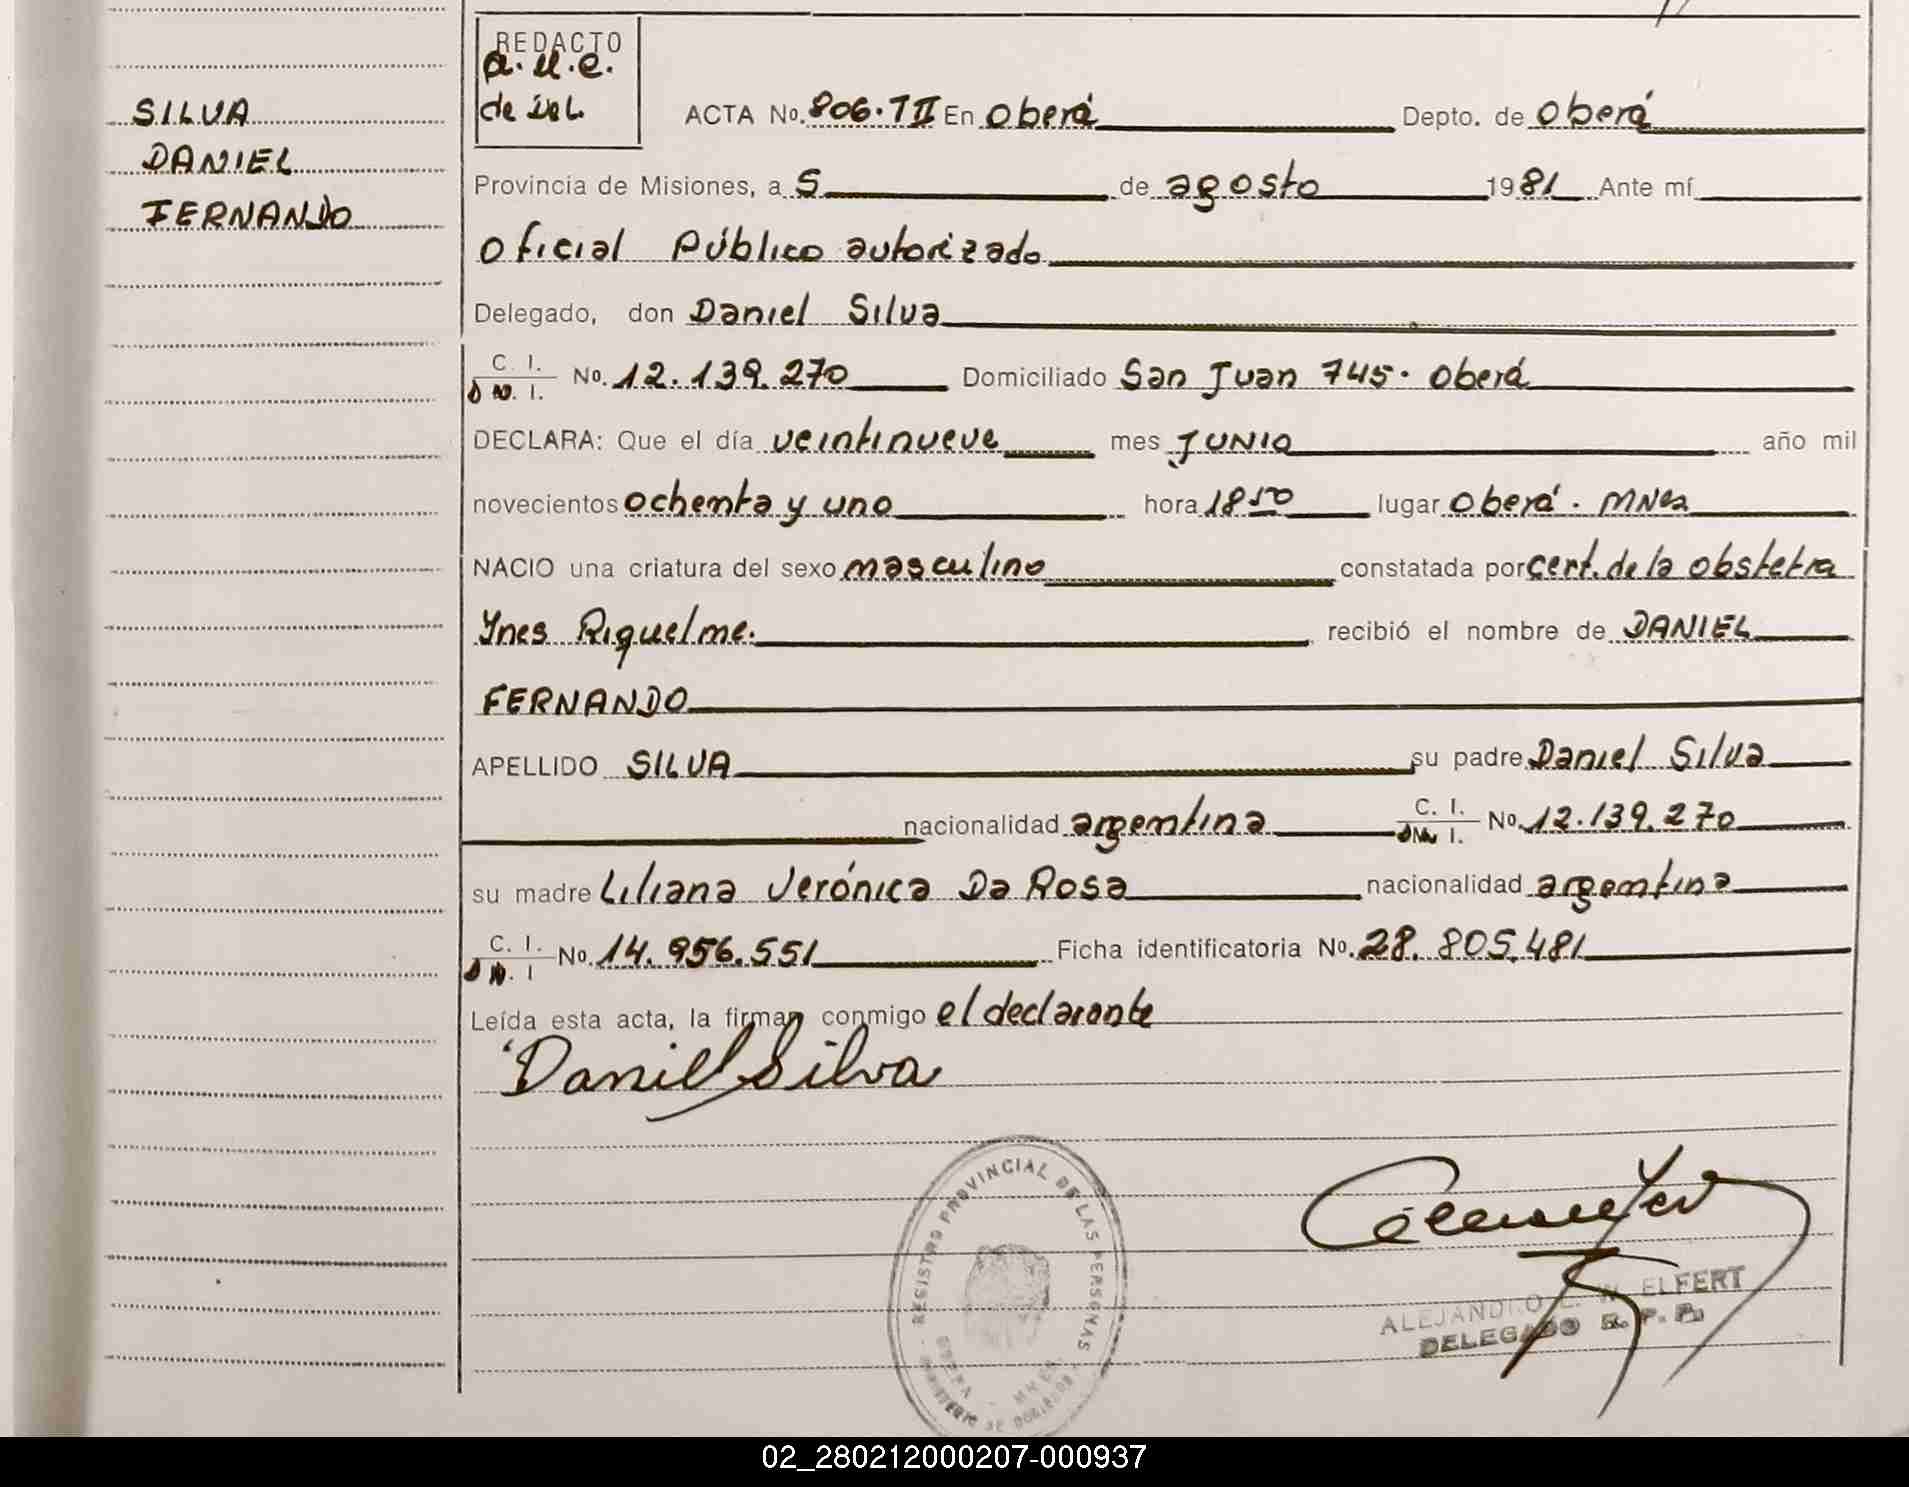 SILVA
DANIEL
FERNANDO
REDACTO
a.u.e.
de Del.
ACTA No. 806·TII En Oberá Depto. de Oberá
Provincia de Misiones, a 5 de agosto 1981 Ante mí
Oficial Público autorizado
Delegado, don Daniel Silva
C. I.
D N. I. No. 12.139.270 Domiciliado San Juan 745· Oberá
DECLARA: Que el día veintinueve mes JUNIO año mil
novecientos ochenta y uno hora 18 50 lugar Oberá. MNes
NACIO una criatura del sexo masculino constatada por cert. de la obstetra
Ynes Riquelme. recibió el nombre de DANIEL
FERNANDO
APELLIDO SILVA su padre Daniel Silva
nacionalidad argentina C. I. No. 12.139.270
su madre Liliana Verónica Da Rosa nacionalidad argentina
C. I.
D N. I No. 14.956.551 Ficha identificatoria No. 28.805.481
Leída esta acta, la firman conmigo el declarante
Daniel Silva
REGISTRO PROVINCIAL DE LAS PERSONAS
MINISTERIO DE GOBIERNO
ELFERT
DELEGADO R. P. P.
02_280212000207-000937